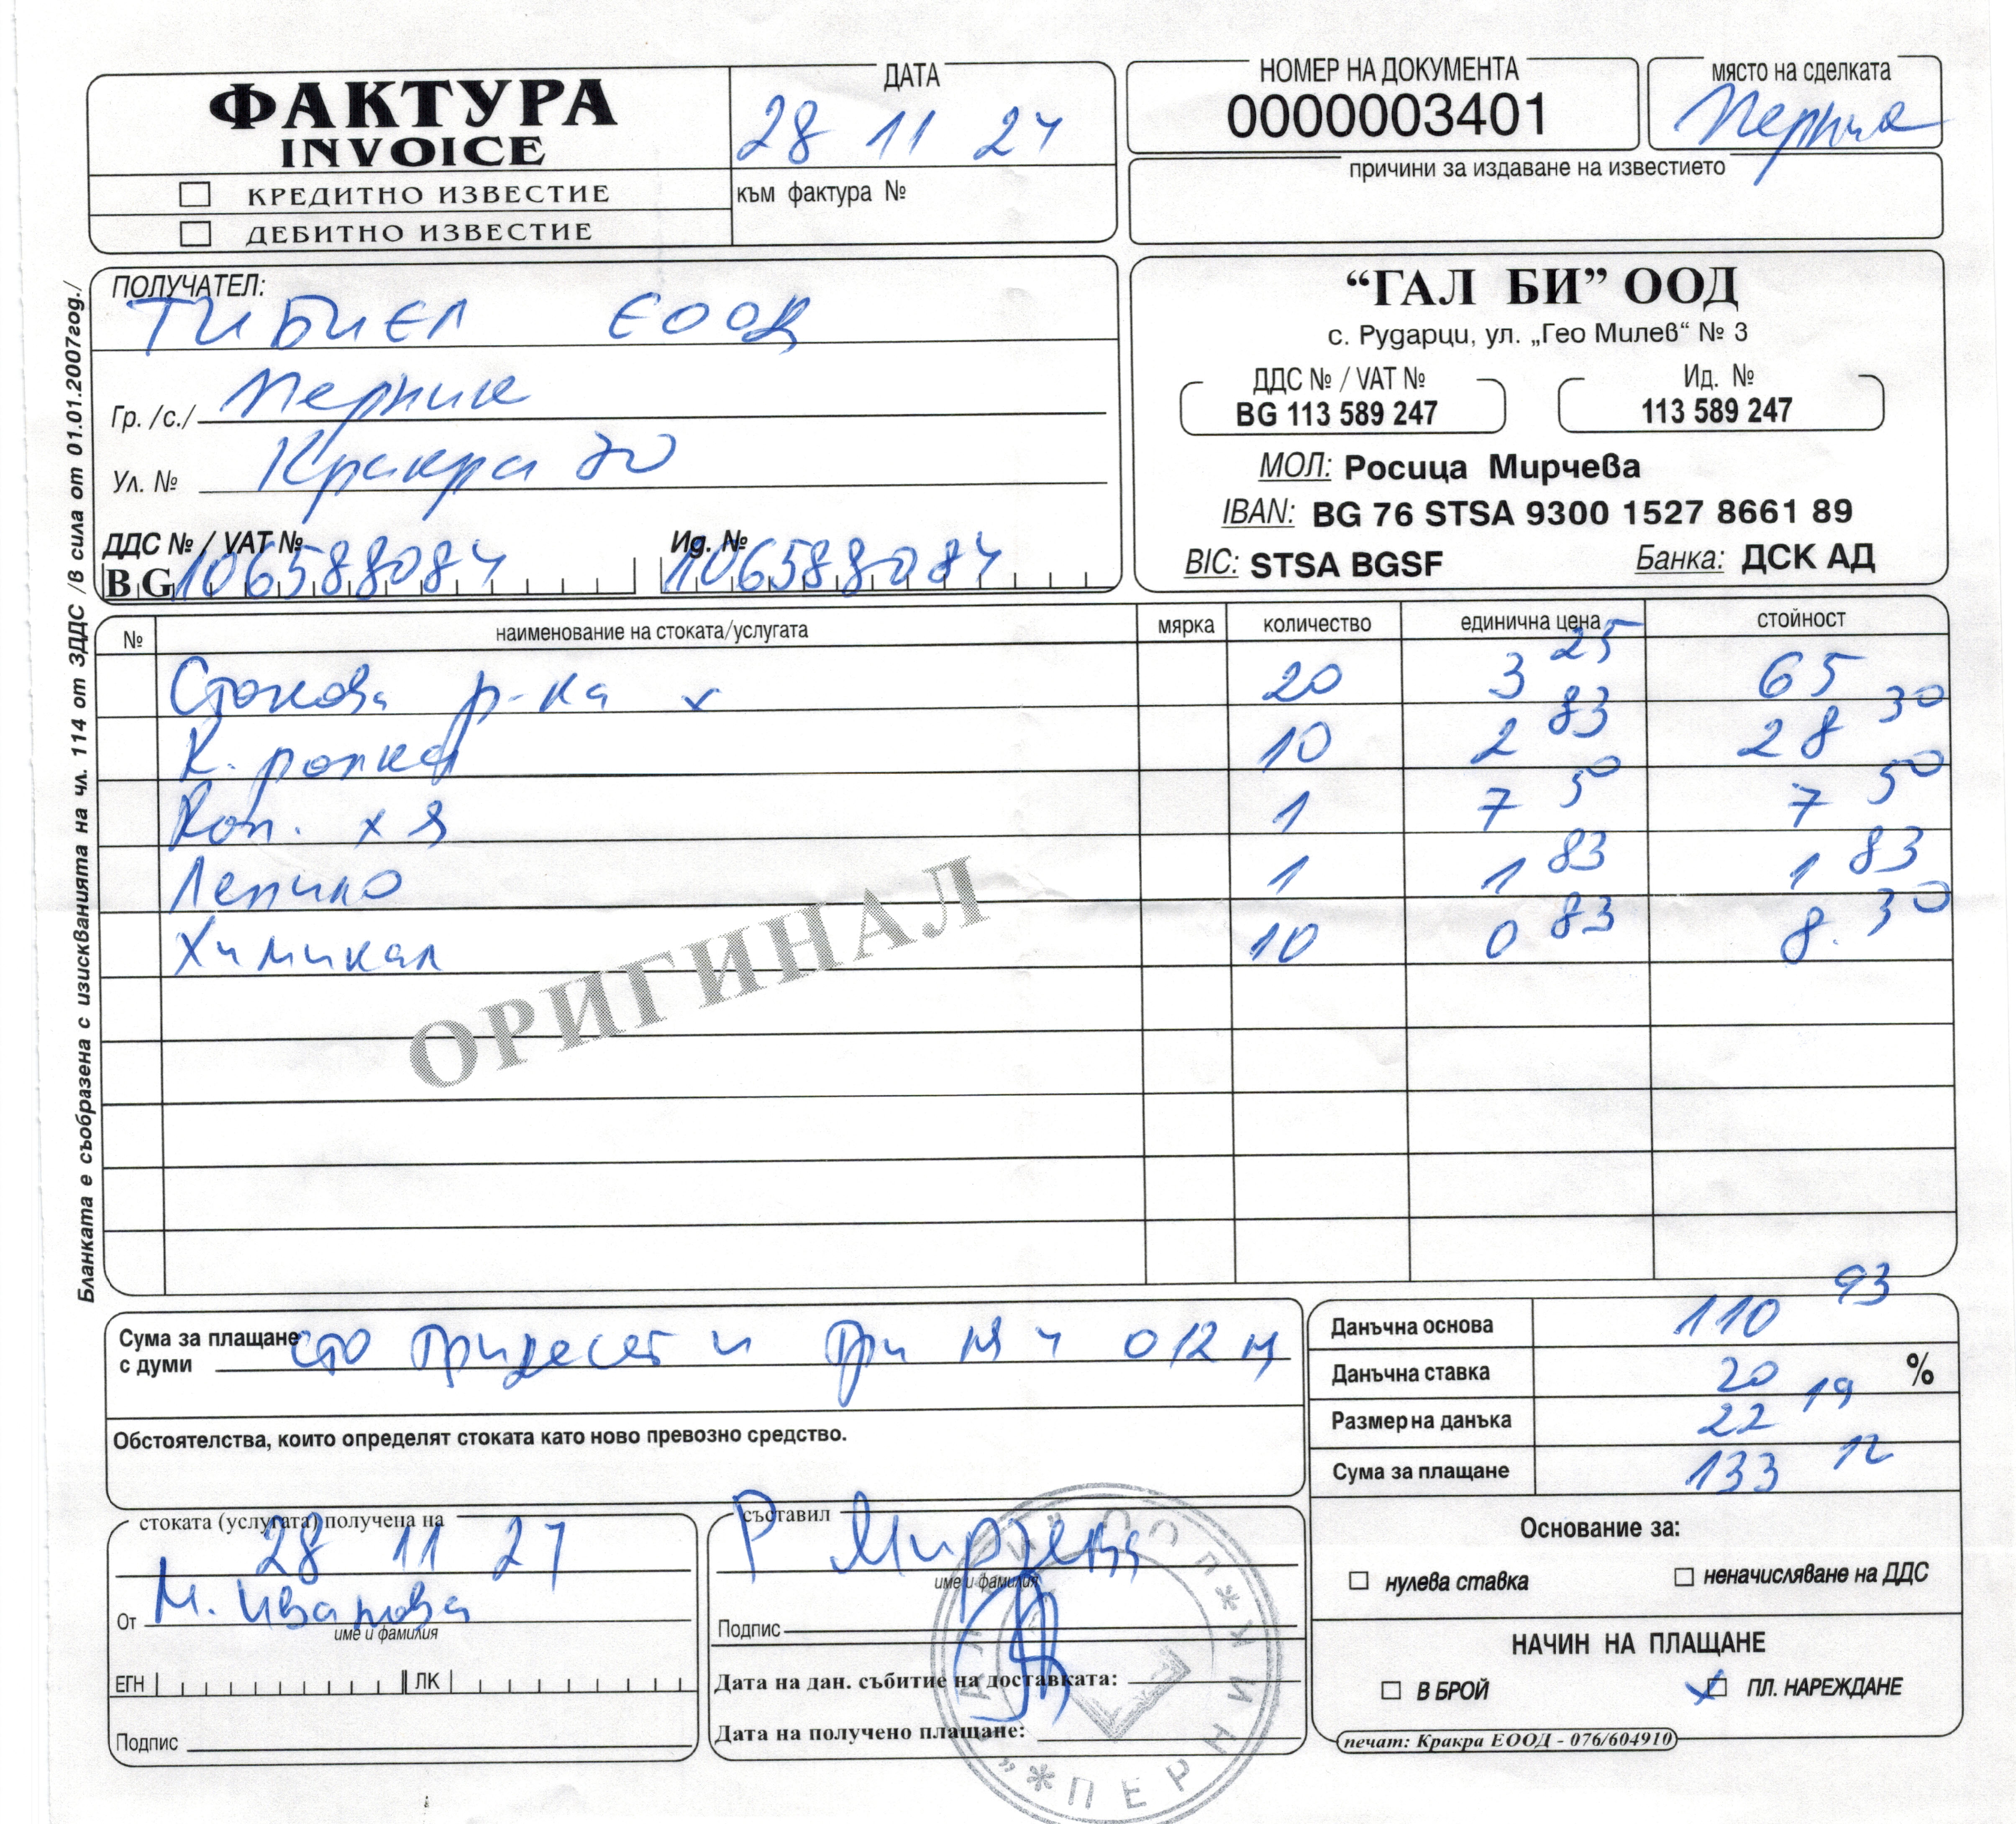 ФАКТУРА
INVOICE
КРЕДИТНО ИЗВЕСТИЕ
ДЕБИТНО ИЗВЕСТИЕ
ДАТА
28 11 24
към фактура №
НОМЕР НА ДОКУМЕНТА
0000003401
място на сделката
Перник
причини за издаване на известието
ПОЛУЧАТЕЛ:
ТИБИЕЛ ЕООД
Гр. /с./ Перник
Ул. № Кракра
ДДС № / VAT № Ид. №
BG 106588084 106588084
“ГАЛ БИ” ООД
с. Рударци, ул. „Гео Милев“ № 3
ДДС № / VAT № Ид. №
BG 113 589 247 113 589 247
МОЛ: Росица Мирчева
IBAN: BG 76 STSA 9300 1527 8661 89
BIC: STSA BGSF Банка: ДСК АД
Бланката е съобразена с изискванията на чл. 114 от ЗДДС /в сила от 01.01.2007год./
№ наименование на стоката/услугата мярка количество единична цена стойност
Стокова р-ка х 20 3 25 65
К. ролка 10 2 83 28 30
Коп. х я 1 7 50 7 50
Лепило 1 1 83 1 83
Химикал 10 0 83 8. 30
ОРИГИНАЛ
Сума за плащане
с думи сто тридесет и три лв и 012 лв
Обстоятелства, които определят стоката като ново превозно средство.
Данъчна основа 110 93
Данъчна ставка 20 %
Размер на данъка 22 19
Сума за плащане 133 12
стоката (услугата) получена на
28 11 24
От М. Иванова
име и фамилия
ЕГН ЛК
Подпис
съставил
Р Мирчева
име и фамилия
Подпис
Дата на дан. събитие на доставката:
Дата на получено плащане:
ПЕРНИК
Основание за:
нулева ставка неначисляване на ДДС
НАЧИН НА ПЛАЩАНЕ
В БРОЙ ПЛ. НАРЕЖДАНЕ
печат: Кракра ЕООД - 076/604910